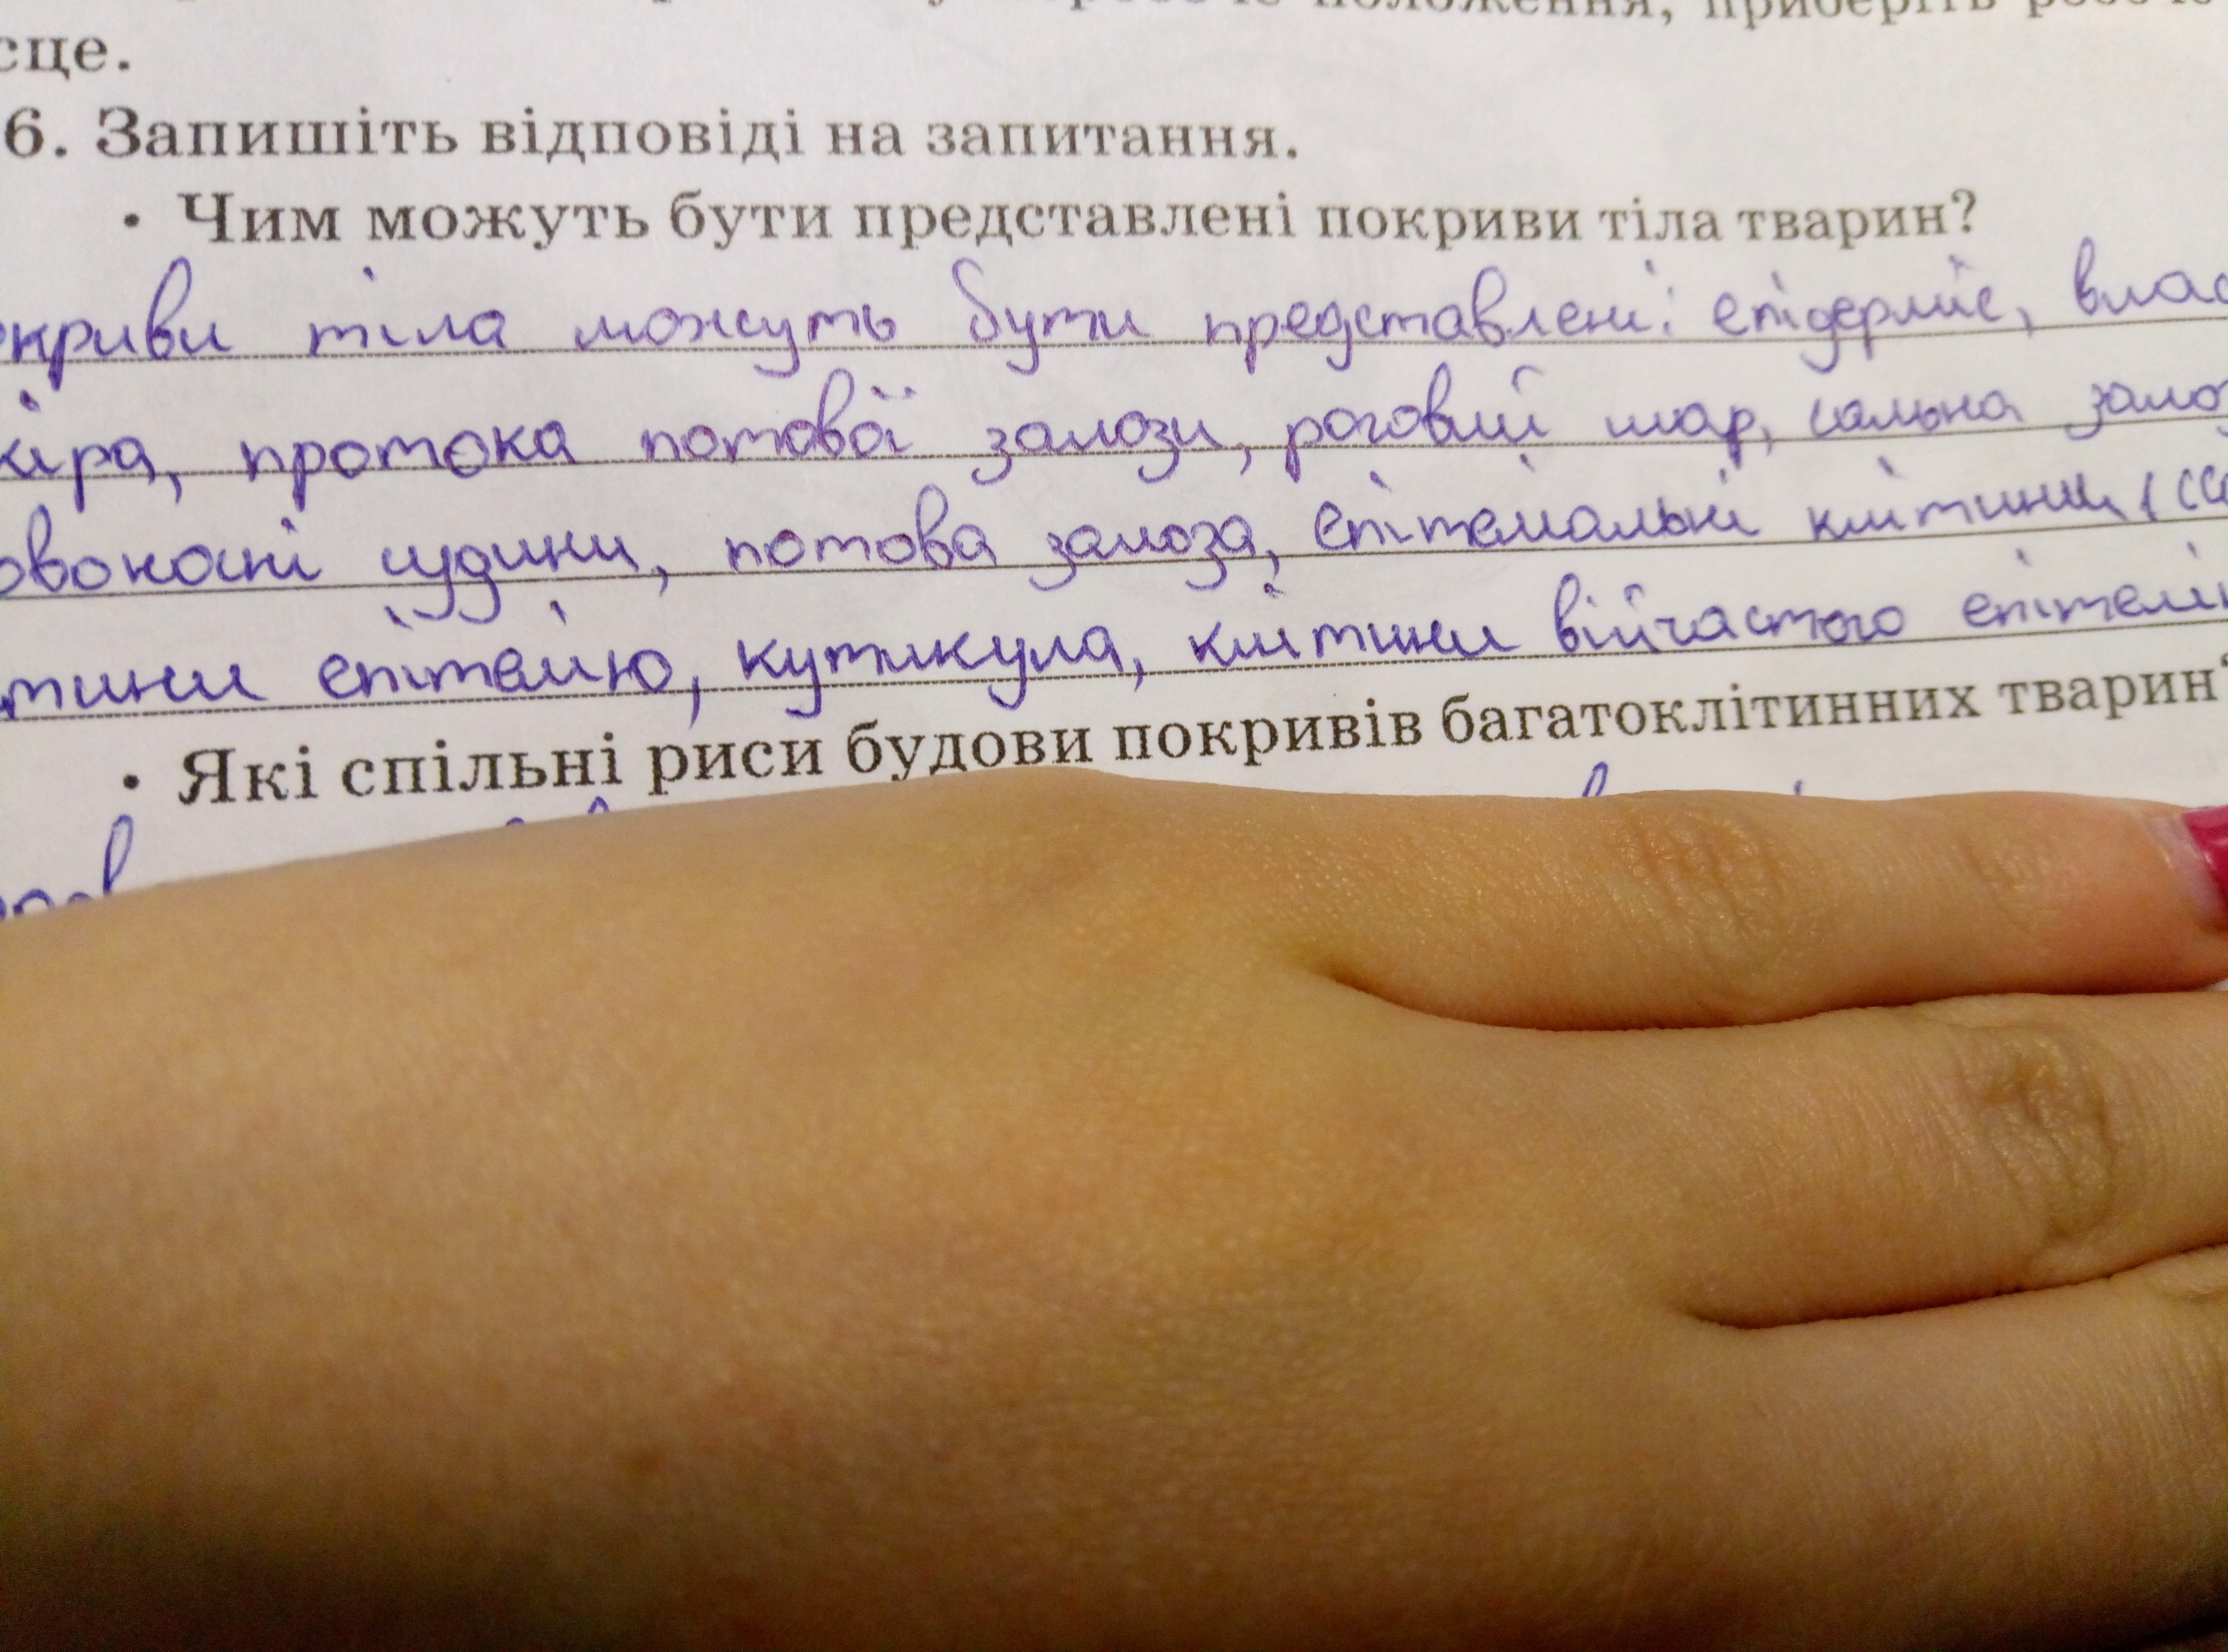 сце.
6. Запишіть відповіді на запитання.
• Чим можуть бути представлені покриви тіла тварин?
криви тіла можуть бути представлені: епідерміс, влас
кіра, протока потової залози, роговий шар, сальна залоз
овоносні судини, потова залоза, епітеліальні клітини,
тини епітелію, кутикула, клітини війчастого епітелі
• Які спільні риси будови покривів багатоклітинних тварин?